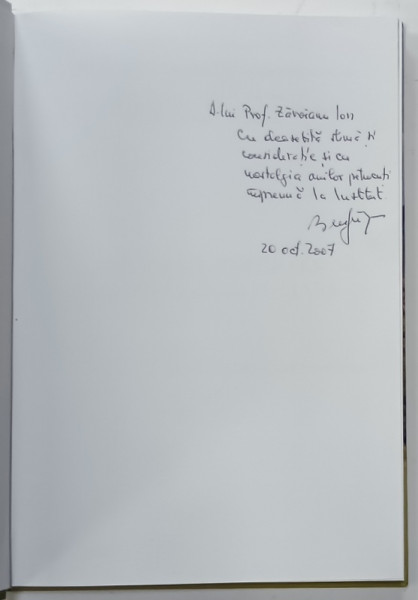 D-lui Prof. Zăvoianu Ion
Cu deosebită stimă și
considerație și cu
nostalgia anilor petrecuți
împreună la Institut
20 oct. 2007